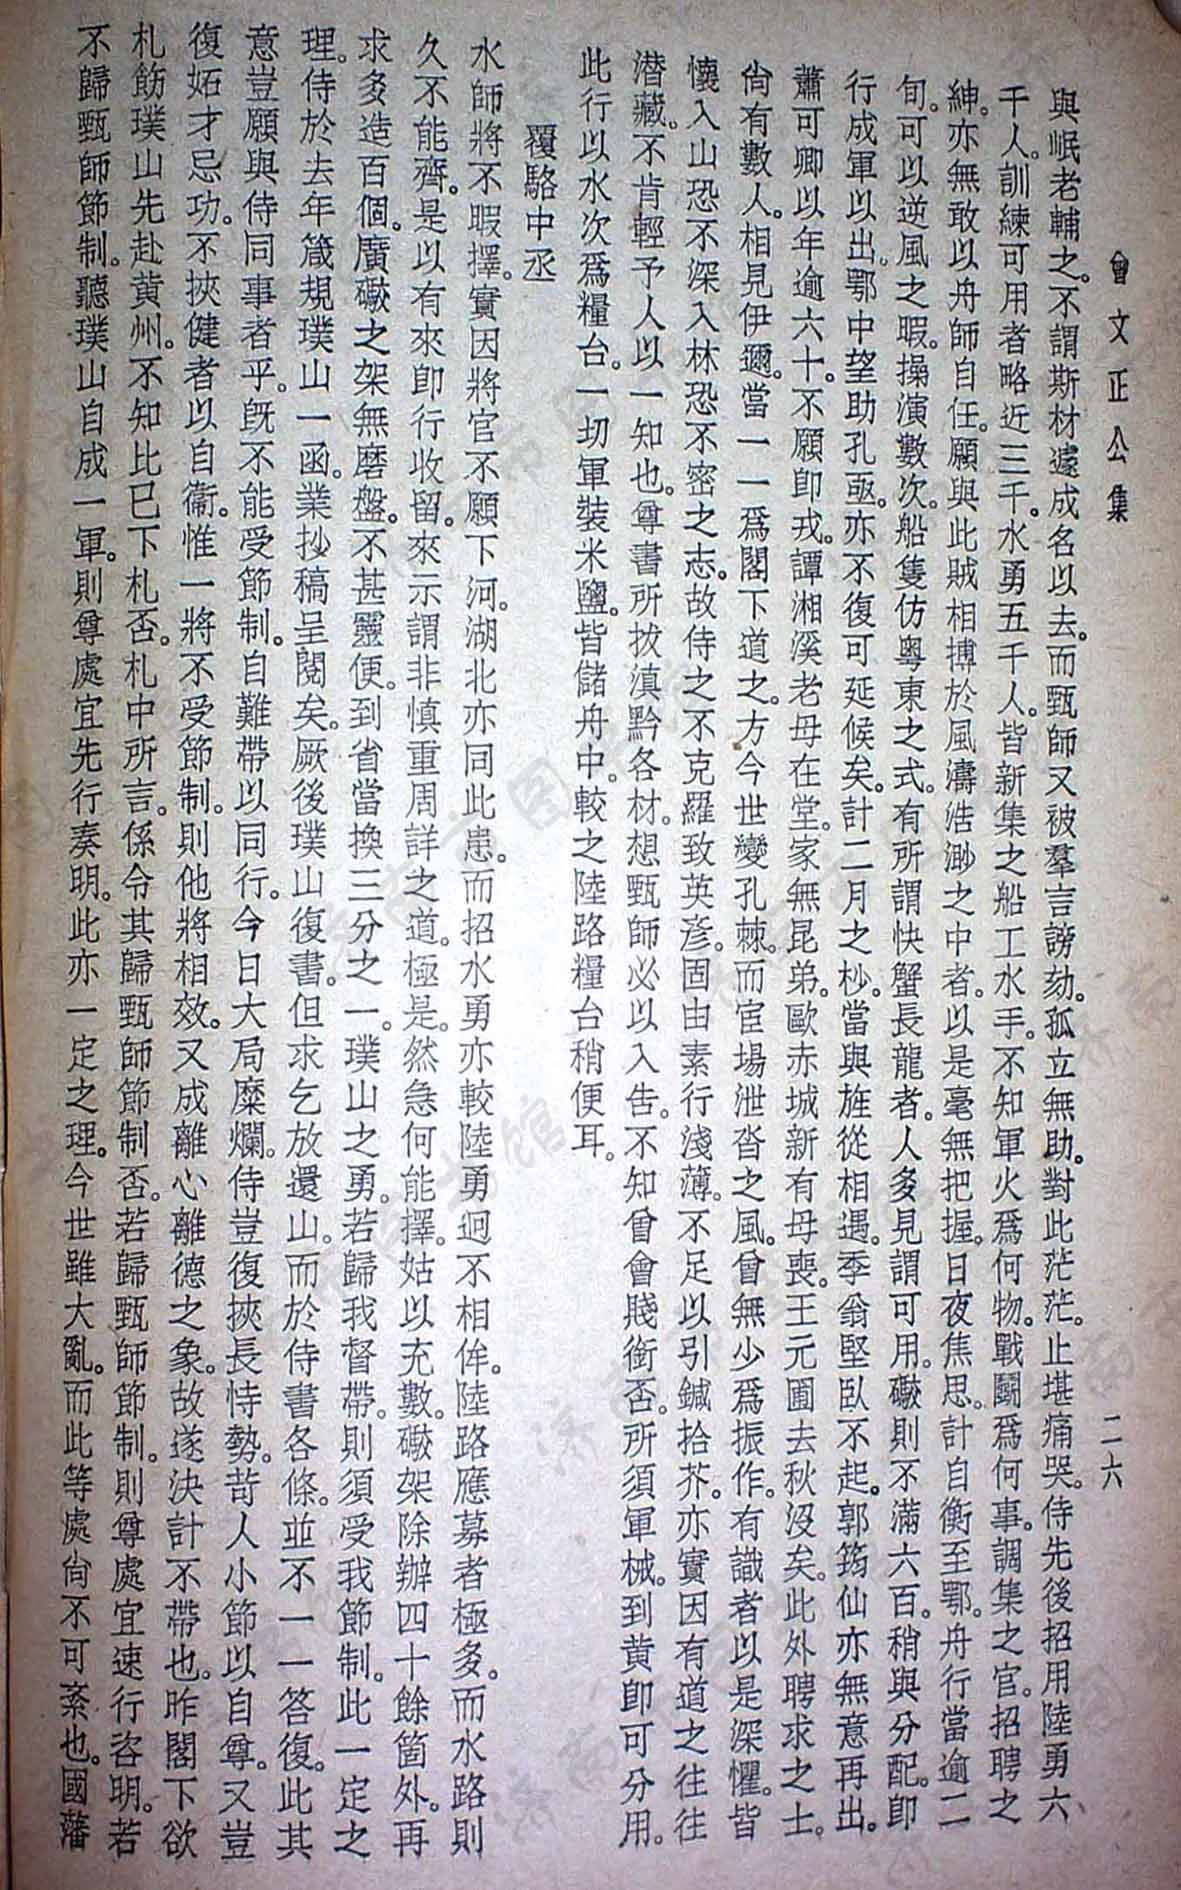 曾文正公集
二六
與岷老輔之。不謂斯材遽成名以去。而甄師又被羣言謗劾。孤立無助。對此茫茫。止堪痛哭。侍先後招用陸勇六
千人。訓練可用者略近三千。水勇五千人。皆新集之船工水手。不知軍火爲何物。戰鬭爲何事。調集之官。招聘之
紳。亦無敢以舟師自任。願與此賊相搏於風濤浩渺之中者。以是毫無把握。日夜焦思。計自衡至鄂。舟行當逾二
旬。可以逆風之暇。操演數次。船隻仿粵東之式。有所謂快蟹長龍者。人多見謂可用。礮則不滿六百。稍與分配。卽
行成軍以出。鄂中望助孔亟。亦不復可延候矣。計二月之杪。當與旌從相遇。季翁堅臥不起。郭筠仙亦無意再出。
蕭可卿以年逾六十。不願卽戎。譚湘溪老母在堂。家無昆弟。歐赤城新有母喪。王元圃去秋沒矣。此外聘求之士。
尙有數人。相見伊邇。當一一爲閣下道之。方今世變孔棘。而宦場泄沓之風。曾無少爲振作。有識者以是深懼。皆
懷入山恐不深入林恐不密之志。故侍之不克羅致英彥。固由素行淺薄。不足以引鍼拾芥。亦實因有道之往往
潛藏。不肯輕予人以一知也。尊書所拔滇黔各材。想甄師必以入告。不知曾會賤銜否。所須軍械。到黃卽可分用。
此行以水次爲糧台。一切軍裝米鹽。皆儲舟中。較之陸路糧台稍便耳。
覆駱中丞
水師將不暇擇。實因將官不願下河。湖北亦同此患。而招水勇亦較陸勇迥不相侔。陸路應募者極多。而水路則
久不能齊。是以有來卽行收留。來示謂非愼重周詳之道。極是。然急何能擇。姑以充數。礮架除辦四十餘箇外。再
求多造百個。廣礮之架無磨盤。不甚靈便。到省當換三分之一。璞山之勇。若歸我督帶。則須受我節制。此一定之
理。侍於去年箴規璞山一函。業抄稿呈閱矣。厥後璞山復書。但求乞放還山。而於侍書各條。並不一一答復。此其
意豈願與侍同事者乎。旣不能受節制。自難帶以同行。今日大局糜爛。侍豈復挾長恃勢。苛人小節以自尊。又豈
復妬才忌功。不挾健者以自衞。惟一將不受節制。則他將相效。又成離心離德之象。故遂決計不帶也。昨閣下欲
札飭璞山先赴黃州。不知比已下札否。札中所言。係令其歸甄師節制否。若歸甄師節制。則尊處宜速行咨明。若
不歸甄師節制。聽璞山自成一軍。則尊處宜先行奏明。此亦一定之理。今世雖大亂。而此等處尙不可紊也。國藩